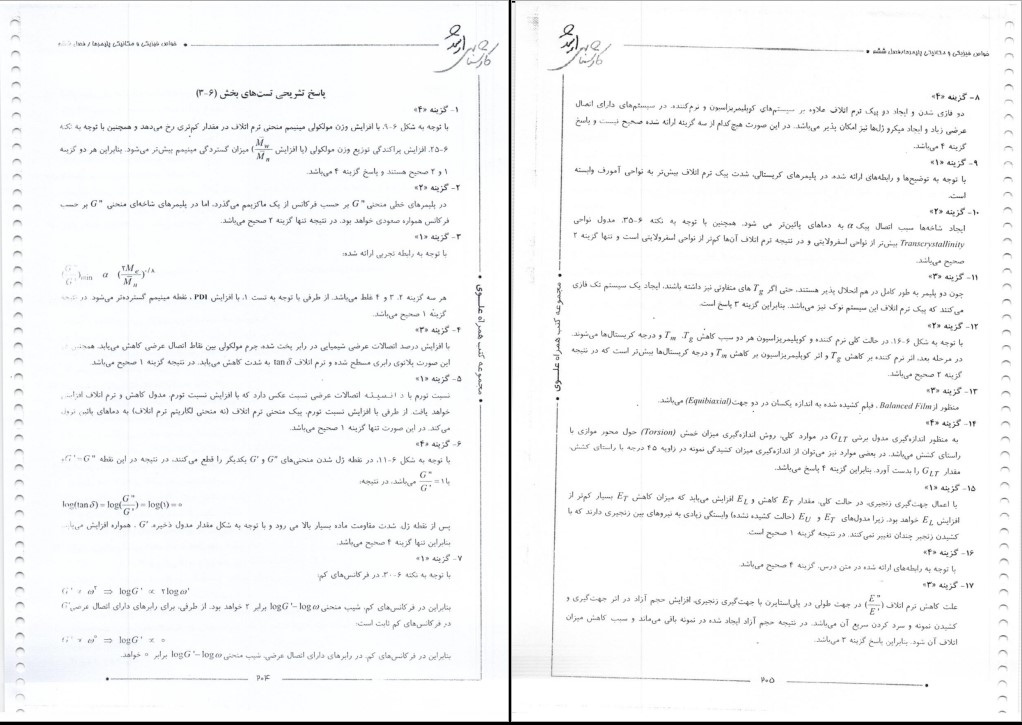 خواص فیزیکی و مکانیکی پلیمرها / فصل ششم
کارشناسی ارشد
پاسخ تشریحی تست‌های بخش (۶-۳)
۱- گزینه «۴»
با توجه به شکل ۶-۹، با افزایش وزن مولکولی مینیمم منحنی ترم اتلاف در مقدار کم‌تری رخ می‌دهد و همچنین با توجه به نکته
۶-۲۵، افزایش پراکندگی توزیع وزن مولکولی (با افزایش M̄w/M̄n) میزان گستردگی مینیمم بیش‌تر می‌شود. بنابراین هر دو گزینه
۱ و ۲ صحیح هستند و پاسخ گزینه ۴ می‌باشد.
۲- گزینه «۲»
در پلیمرهای خطی منحنی G" بر حسب فرکانس از یک ماکزیمم می‌گذرد، اما در پلیمرهای شاخه‌ای منحنی G" بر حسب
فرکانس همواره صعودی خواهد بود. در نتیجه تنها گزینه ۲ صحیح می‌باشد.
۳- گزینه «۱»
با توجه به رابطه تجربی ارائه شده:
(G"/G')min α (۲Me/M̄n)^۰/۸
هر سه گزینه ۲، ۳ و ۴ غلط می‌باشد. از طرفی با توجه به تست ۱، با افزایش PDI ، نقطه مینیمم گسترده‌تر می‌شود. در نتیجه
گزینه ۱ صحیح می‌باشد.
۴- گزینه «۳»
با افزایش درصد اتصالات عرضی شیمیایی در رابر پخت شده، جرم مولکولی بین نقاط اتصال عرضی کاهش می‌یابد. همچنین در
این صورت پلاتوی رابری مسطح شده و ترم اتلاف tan δ به شدت کاهش می‌یابد. در نتیجه گزینه ۱ صحیح می‌باشد.
۵- گزینه «۱»
نسبت تورم با دانسیته اتصالات عرضی نسبت عکس دارد که با افزایش نسبت تورم، مدول کاهش و ترم اتلاف افزایش
خواهد یافت. از طرفی با افزایش نسبت تورم، پیک منحنی ترم اتلاف (نه منحنی لگاریتم ترم اتلاف) به دماهای پائین نزول
می‌کند. در این صورت تنها گزینه ۱ صحیح می‌باشد.
۶- گزینه «۴»
با توجه به شکل ۶-۱۱، در نقطه ژل شدن منحنی‌های G" و G' یکدیگر را قطع می‌کنند. در نتیجه در این نقطه G'=G"
یا G"/G'=۱ می‌باشد. در نتیجه:
log(tan δ) = log(G"/G') = log(۱) = ۰
پس از نقطه ژل شدت مقاومت ماده بسیار بالا می رود و با توجه به شکل مقدار مدول ذخیره G' ، همواره افزایش می‌یابد.
بنابراین تنها گزینه ۴ صحیح می‌باشد.
۷- گزینه «۱»
با توجه به نکته ۶-۳۰، در فرکانس‌های کم:
G' ∝ ω^۲ ⇒ log G' ∝ ۲ log ω
بنابراین در فرکانس‌های کم، شیب منحنی log G' - log ω برابر ۲ خواهد بود. از طرفی، برای رابرهای دارای اتصال عرضی G'
در فرکانس‌های کم ثابت است:
G' ∝ ω^۰ ⇒ log G' ∝ ۰
بنابراین در فرکانس‌های کم، در رابرهای دارای اتصال عرضی، شیب منحنی log G' - log ω برابر ۰ خواهد.
۲۰۴
مجموعه کتب همراه علوی
خواص فیزیکی و مکانیکی پلیمرها/فصل ششم
کارشناسی ارشد
۸- گزینه «۴»
دو فازی شدن و ایجاد دو پیک ترم اتلاف علاوه بر سیستم‌های کوپلیمریزاسیون و نرم‌کننده، در سیستم‌های دارای اتصال
عرضی زیاد و ایجاد میکرو ژل‌ها نیز امکان پذیر می‌باشد. در این صورت هیچ‌کدام از سه گزینه ارائه شده صحیح نیست و پاسخ
گزینه ۴ می‌باشد.
۹- گزینه «۱»
با توجه به توضیح‌ها و رابطه‌های ارائه شده، در پلیمرهای کریستالی، شدت پیک ترم اتلاف بیش‌تر به نواحی آمورف وابسته
است.
۱۰- گزینه «۲»
ایجاد شاخه‌ها سبب اتصال پیک α به دماهای پائین‌تر می شود. همچنین با توجه به نکته ۶-۳۵، مدول نواحی
Transcrystallinity بیش‌تر از نواحی اسفرولایتی و در نتیجه ترم اتلاف آن‌ها کم‌تر از نواحی اسفرولایتی است و تنها گزینه ۲
صحیح می‌باشد.
۱۱- گزینه «۳»
چون دو پلیمر به طور کامل در هم انحلال پذیر هستند، حتی اگر Tg های متفاوتی نیز داشته باشند، ایجاد یک سیستم تک فازی
می‌کنند که پیک ترم اتلاف این سیستم نوک تیز می‌باشد. بنابراین گزینه ۳ پاسخ است.
۱۲- گزینه «۲»
با توجه به شکل ۶-۱۶، در حالت کلی نرم کننده و کوپلیمریزاسیون هر دو سبب کاهش Tg، Tm و درجه کریستال‌ها می‌شوند.
در مرحله بعد، اثر نرم کننده بر کاهش Tg و اثر کوپلیمریزاسیون بر کاهش Tm و درجه کریستال‌ها بیش‌تر است که در نتیجه
گزینه ۲ صحیح می‌باشد.
۱۳- گزینه «۳»
منظور از Balanced Film ، فیلم کشیده شده به اندازه یکسان در دو جهت (Equibiaxial) می‌باشد.
۱۴- گزینه «۴»
به منظور اندازه‌گیری مدول برشی GLT در موارد کلی، روش اندازه‌گیری میزان خمش (Torsion) حول محور موازی با
راستای کشش می‌باشد. در بعضی موارد نیز می‌توان از اندازه‌گیری میزان کشیدگی نمونه در زاویه ۴۵ درجه با راستای کشش،
مقدار GLT را بدست آورد. بنابراین گزینه ۴ پاسخ می‌باشد.
۱۵- گزینه «۱»
با اعمال جهت‌گیری زنجیری، در حالت کلی، مقدار ET کاهش و EL افزایش می‌یابد که میزان کاهش ET بسیار کم‌تر از
افزایش EL خواهد بود. زیرا مدول‌های ET و EU (حالت کشیده نشده) وابستگی زیادی به نیروهای بین زنجیری دارند که با
کشیدن زنجیر چندان تغییر نمی‌کنند. در نتیجه گزینه ۱ صحیح است.
۱۶- گزینه «۴»
با توجه به رابطه‌های ارائه شده در متن درس، گزینه ۴ صحیح می‌باشد.
۱۷- گزینه «۳»
علت کاهش ترم اتلاف (E"/E') در جهت طولی در پلی‌استایرن با جهت‌گیری زنجیری، افزایش حجم آزاد در اثر جهت‌گیری و
کشیدن نمونه و سرد کردن سریع آن می‌باشد. در نتیجه حجم آزاد ایجاد شده در نمونه باقی می‌ماند و سبب کاهش میزان
اتلاف آن شود. بنابراین پاسخ گزینه ۳ می‌باشد.
۲۰۵
مجموعه کتب همراه علوی